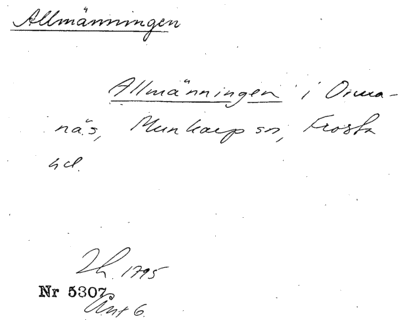 Allmänningen
Allmänningen i Orma-
näs, Munkarp sn, Frosta
hd.
Lh. 1795
Nr 5307
Ant 6.